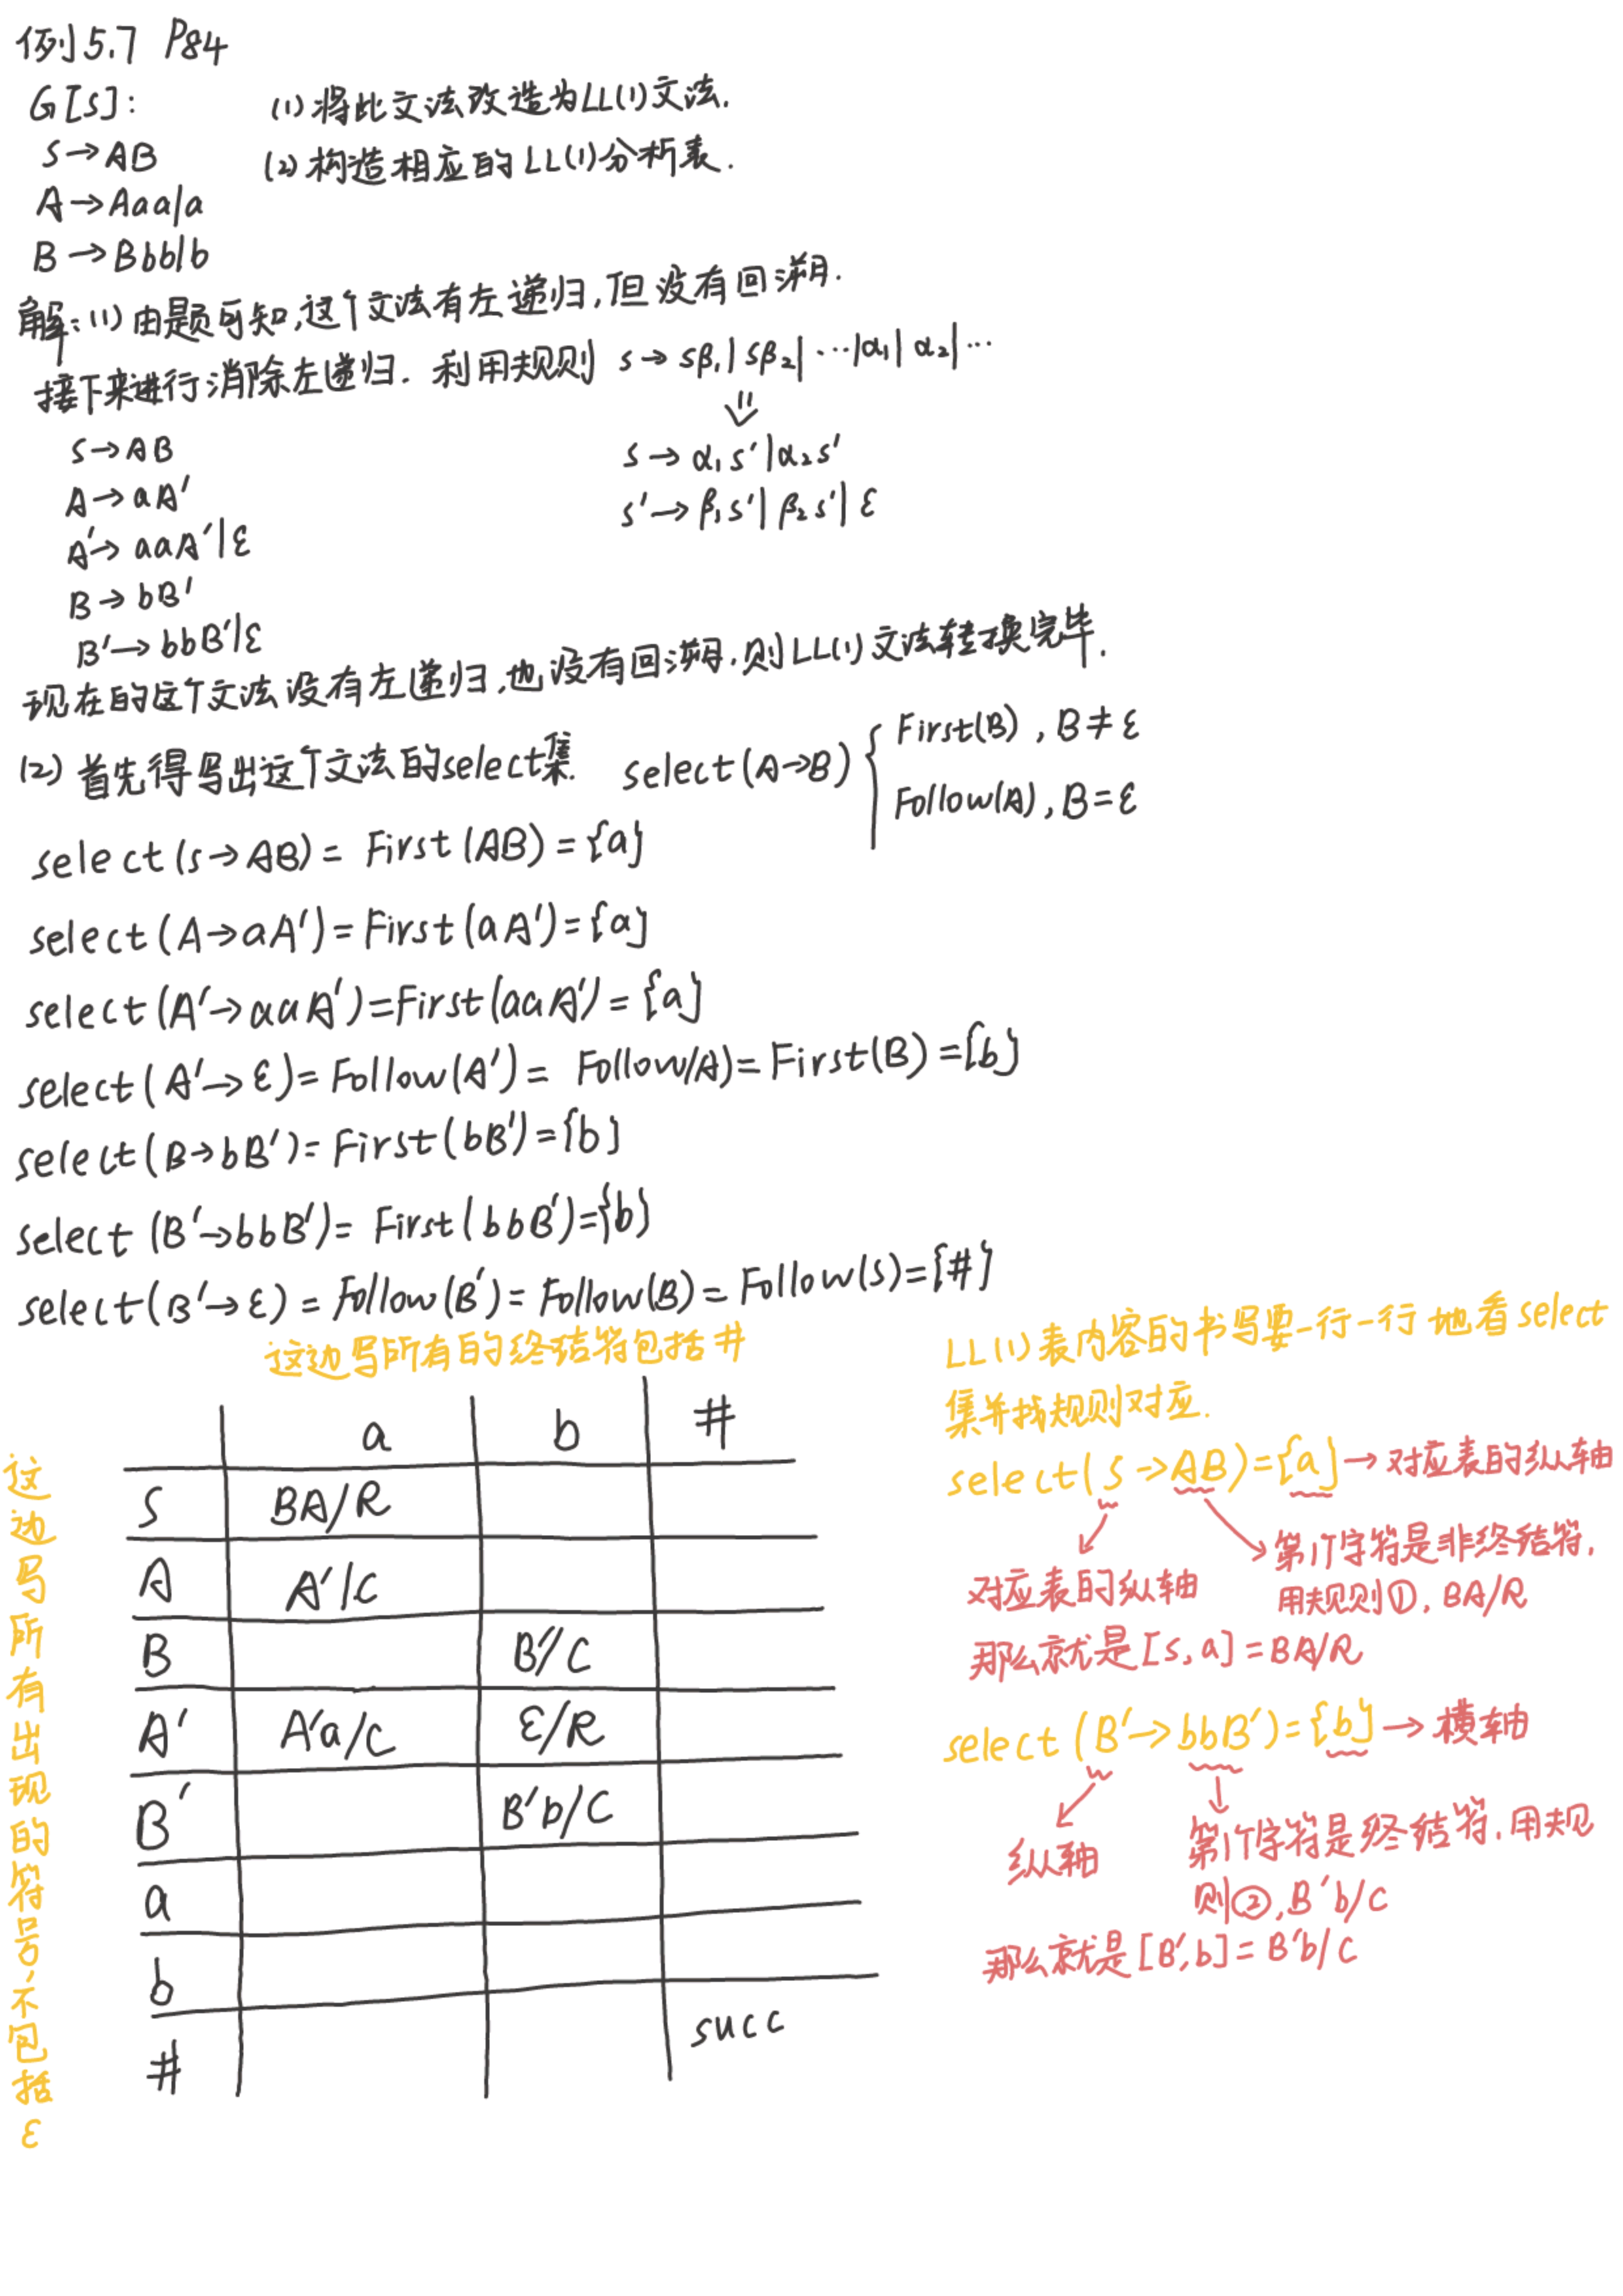 例5.7 P84
G[S]:
(1)将此文法改造为LL(1)文法.
S→AB
(2)构造相应的LL(1)分析表.
A→Aaa|a
B→Bbb|b
解:(1)由题可知,这个文法有左递归,但没有回溯.
接下来进行消除左递归. 利用规则 s→sβ₁|sβ₂|…|α₁|α₂|…
⇓
S→AB
s→α₁s'|α₂s'
A→aA'
s'→β₁s'|β₂s'|ε
A'→aaA'|ε
B→bB'
B'→bbB'|ε
现在的这个文法没有左递归,也没有回溯,则LL(1)文法转换完毕.
(2) 首先得写出这个文法的select集. select(A→B) { First(B), B≠ε
Follow(A), B=ε
select(s→AB)= First(AB)={a}
select(A→aA')=First(aA')={a}
select(A'→aaA')=First(aaA')={a}
select(A'→ε)=Follow(A')= Follow(A)=First(B)={b}
select(B→bB')=First(bB')={b}
select(B'→bbB')= First(bbB')={b}
select(B'→ε)=Follow(B')=Follow(B)=Follow(s)={#}
这边写所有的终结符包括#
a b #
S BA/R
A A'/c
B B'/c
A' A'a/c ε/R
B' B'b/c
a
b
# succ
这边写所有出现的符号,不包括ε
LL(1)表内容的书写要一行一行地看select
集并找规则对应.
select(S→AB)={a}→对应表的纵轴
对应表的纵轴
第1个字符是非终结符,
用规则①, BA/R
那么就是[s,a]=BA/R
select(B'→bbB')={b}→横轴
纵轴
第1个字符是终结符,用规
则②,B'b/c
那么就是[B',b]=B'b/c